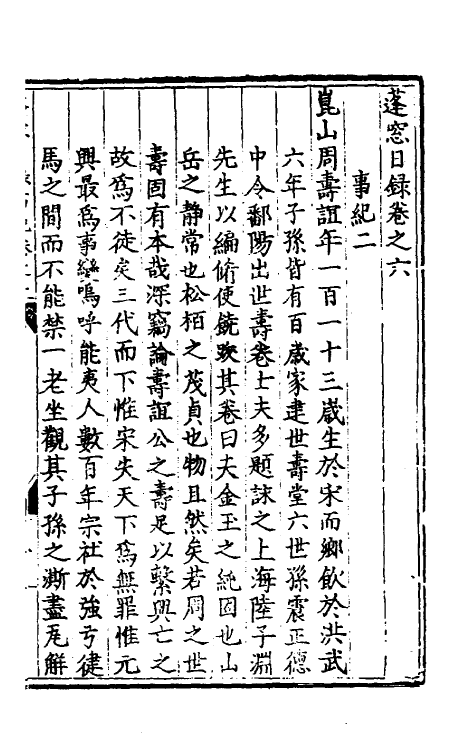 蓬窓日録卷之六
事紀二
崑山周壽誼年一百一十三歲生於宋而鄉飲於洪武
六年子孫皆有百歲家建世壽堂六世孫震正德
中令鄱陽出世壽卷士夫多題詠之上海陸子淵
先生以編脩使饒跋其卷曰夫金玉之純固也山
岳之静常也松栢之茂貞也物且然矣若周之世
壽固有本哉深竊論壽誼公之壽足以繫興亡之
故爲不徒矣三代而下惟宋失天下爲無罪惟元
興最爲事變嗚呼能夷人數百年宗社於強弓徤
馬之間而不能禁一老坐觀其子孫之漸盡瓦解